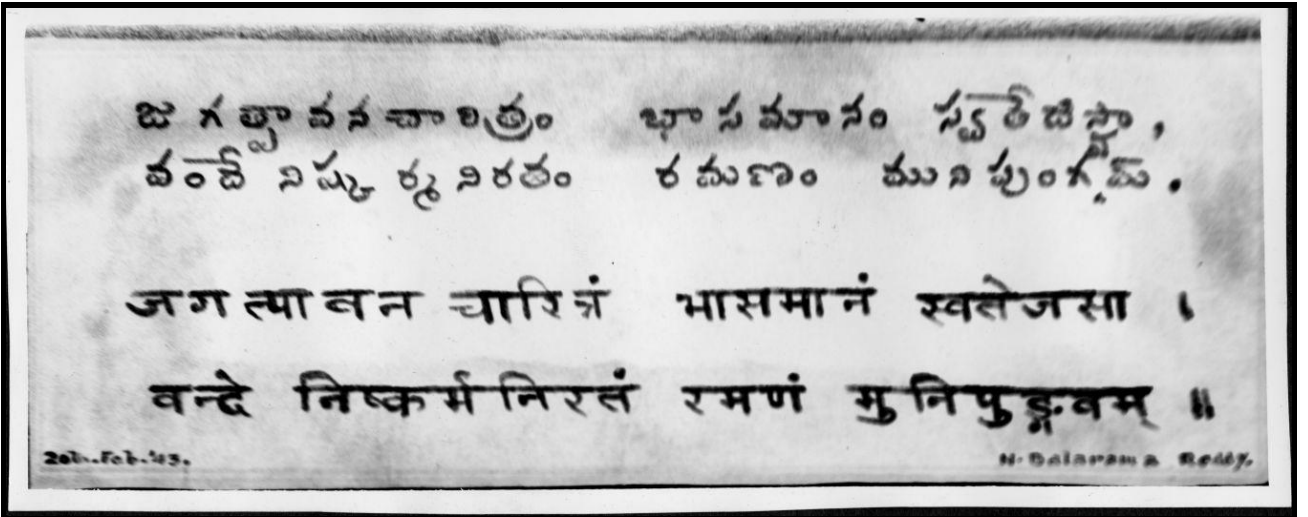 జగత్పావనచారిత్రం భాసమానం స్వతేజసా,
వందే నిష్కర్మనిరతం రమణం మునిపుంగవమ్.
जगत्पावन चारित्रं भासमानं स्वतेजसा ।
वन्दे निष्कर्मनिरतं रमणं मुनिपुङ्गवम् ॥
20th.Feb.'43. N. Balarama Reddy.